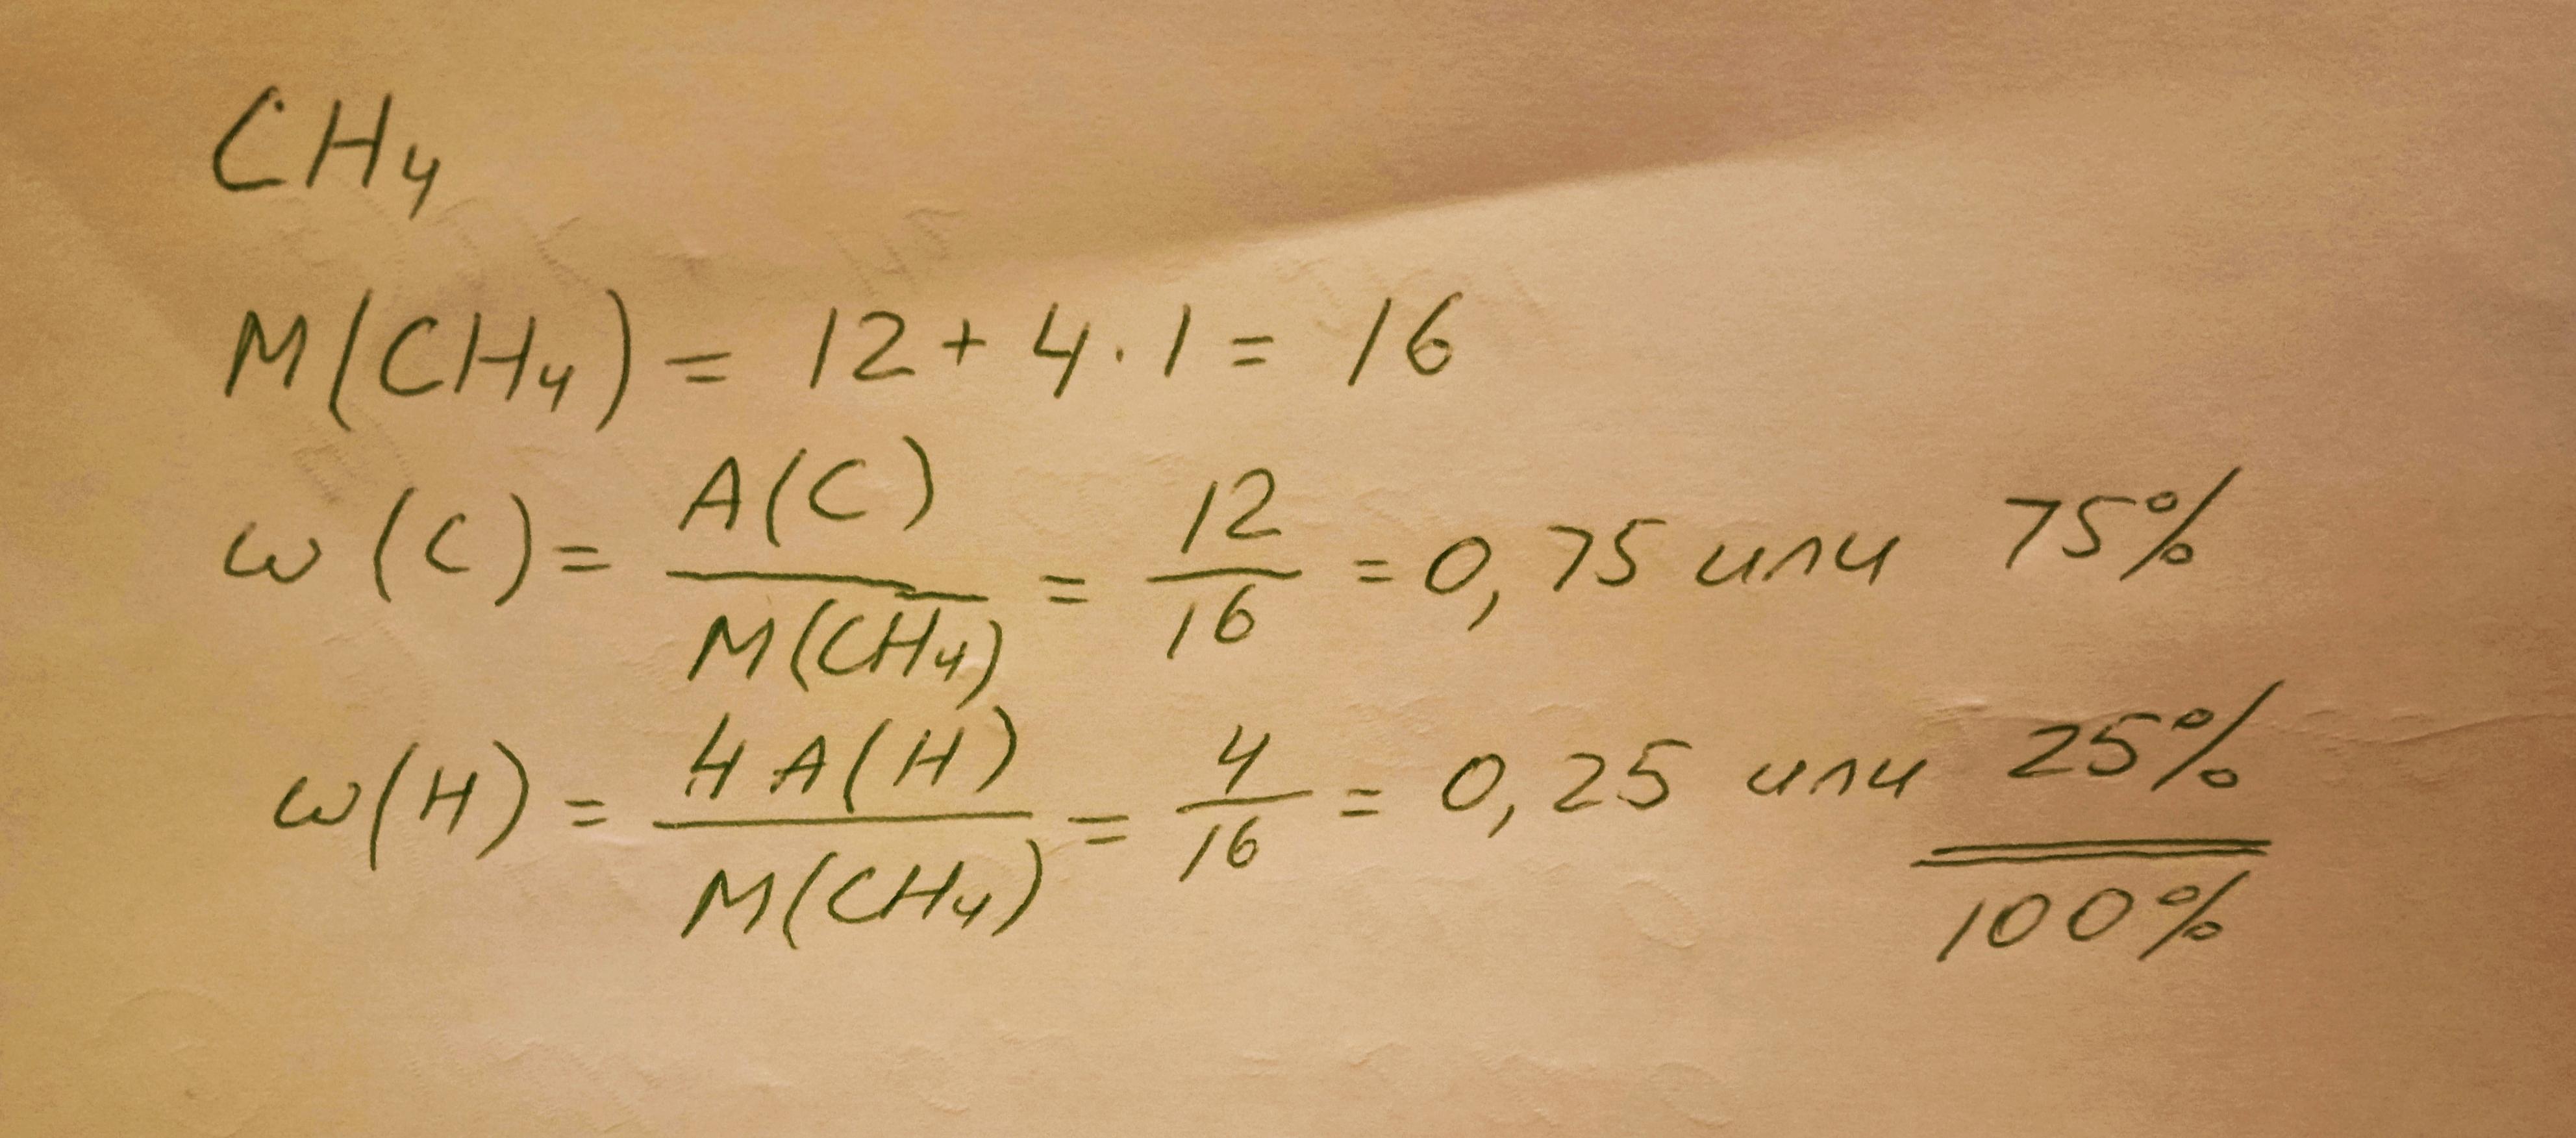 CH₄
M(CH₄) = 12 + 4 · 1 = 16
ω(C) = A(C) / M(CH₄) = 12 / 16 = 0,75 или 75%
ω(H) = 4 A(H) / M(CH₄) = 4 / 16 = 0,25 или 25%
100%